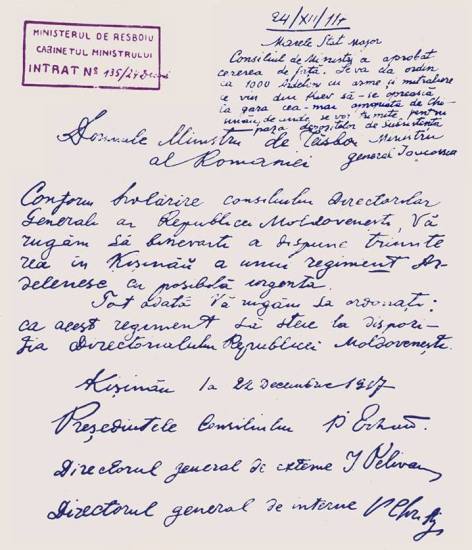 MINISTERUL DE RESBOIU
CABINETUL MINISTRULUI
INTRAT Nº 135/24 Decem
24/XII/917
Marele Stat Major
Consiliul de Miniștri a aprobat
cererea de față. Se va da ordin
ca 1000 Ardeleni cu arme și mitraliere
ce vin din Kiev să se oprească
la gara cea mai apropiată de Chi-
șinău, de unde se vor trimite pentru
paza depozitelor de subsistență
Ministru
general Iancovescu
Domnule Ministru de Răsboi
al României
Conform hotărîre consiliului Directorilor
Generali ai Republicei Moldovenești, Vă
rugăm să binevoiți a dispune trimite
rea în Kișinău a unui regiment Ar-
delenesc cu posibilă urgență.
Tot odată Vă rugăm să ordonați:
ca acest regiment să steie la dispozi-
ția Directorialului Republicei Moldovenești.
Kișinău la 22 Decembrie 1917
Președintele Consiliului P Erhan.
Directorul general de externe I Pelivan
Directorul general de interne V Christ